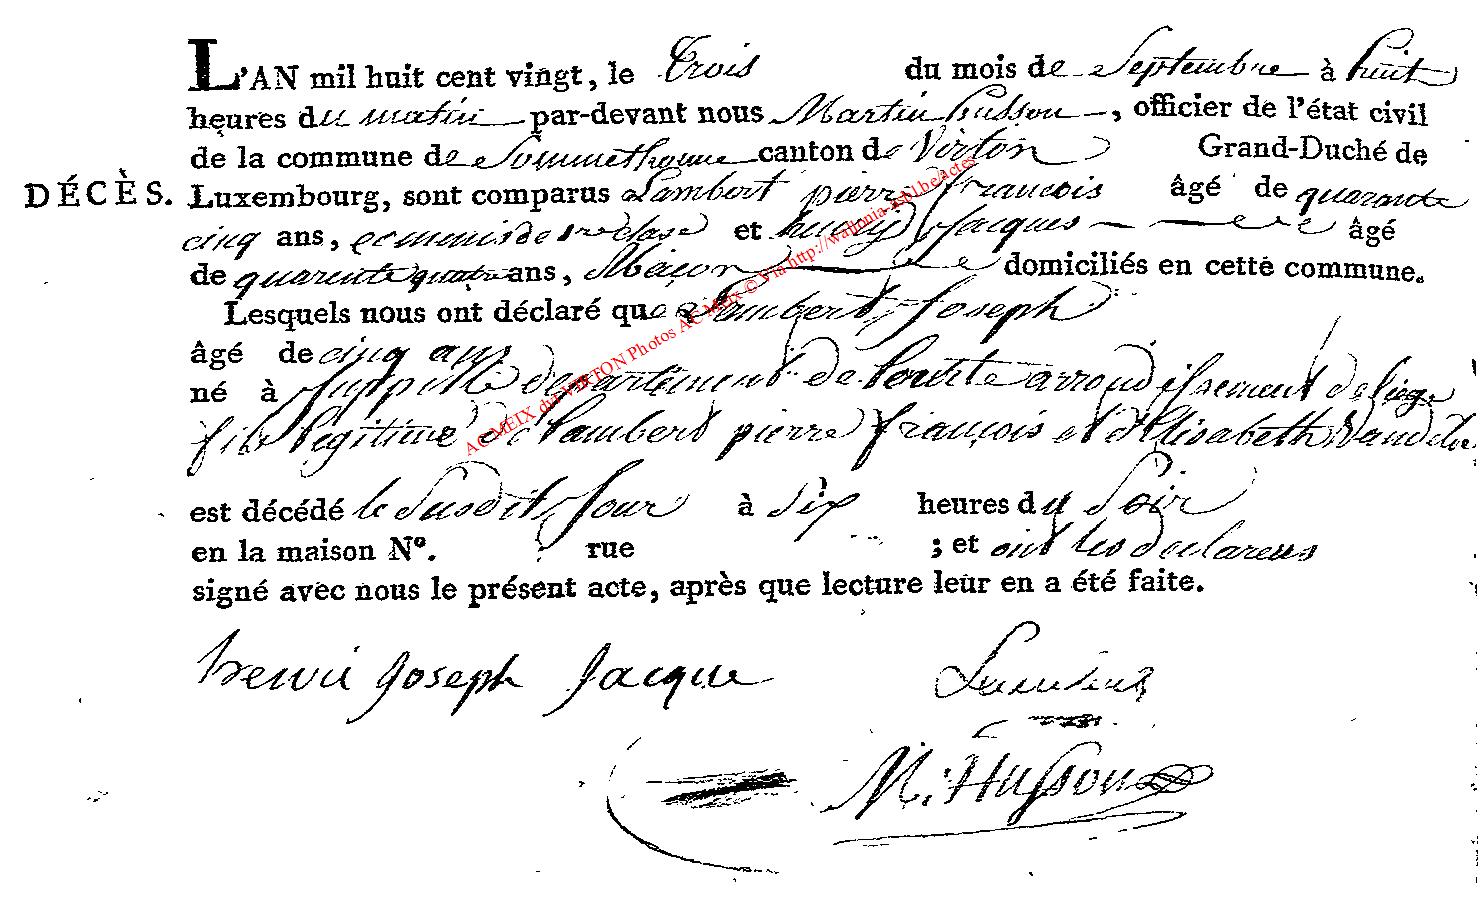 L'AN mil huit cent vingt, le Trois du mois de Septembre à huit
heures du matin par-devant nous Martin husson, officier de l'état civil
de la commune de Sommethonne canton de Virton Grand-Duché de
DÉCÈS. Luxembourg, sont comparus Lambert pierre françois âgé de quarante
cinq ans, et Jacques âgé
de quarente quatre ans, Maçon domiciliés en cette commune.
Lesquels nous ont déclaré que Lambert Joseph
âgé de cinq ans
né à département de lourte arrondissement de liége
fils légitime de lambert pierre françois et d'Elisabeth
est décédé le susdit jour à six heures du Soir
en la maison N°. rue ; et ont les declareus
signé avec nous le présent acte, après que lecture leur en a été faite.
Joseph Jacque
M. Husson
AC MEIX dvt VIRTON Photos AC Meix © Via http://wallonia-asbl.be/actes